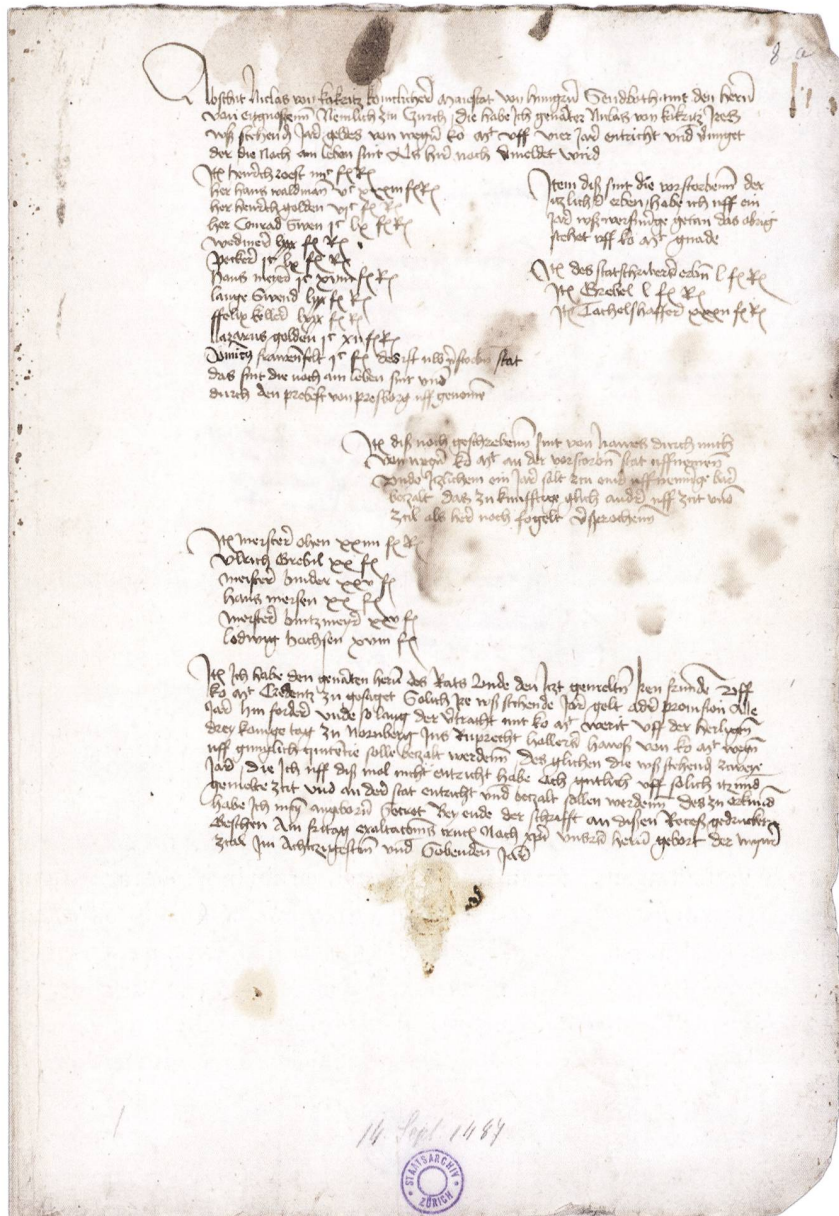 8 a
Abscheit Niclas von kokeritz konnclicher Maiestat von hungern Sendboth mit den hern
von eitgnossenn Nemlich zu Zurch, die habe ich genanter Niclas von kokeritz Ires
usstehend Jar geldes von wegen ko mt uff vier Jar entricht und
der die noch am leben sint als hir noch vmeldet wird
Itm heinrich roest iiijc fl R
her hans waldman vc xxxiii fl R
her heinrich golden vjc fl R
her Conrad Swen jc lx fl R
Wedmer lxx fl R
Pecker jc lx fl R
hans meyer jc xiiii fl R
lange Swend lxx fl R
ffelix keller lxxx fl R
lazarus golden jc xii fl R
frawenfelt jc fl des ist stat
das sint die noch am leben sint und
durch den probst von presborg uff genomen
Item diß sint die vorstorbenn der
itzlichs erben habe ich uff ein
Jar getan das obrig
stehet uff ko mt gnade
Itm des statschribers erbin l fl R
Itm Grebel l fl R
Itm Tachelshoffer xxxii fl R
Itm diß noch geschrebenn sint von nawes durch mich
von wegen ko mt an der vorstorben stat uffnemen
vnde itzlichem ein Jar solt zu einer uffnemunge bar
bezalt das zukunfftige glich andern uff zeit vnd
zeil als her noch folgett vsprochenn
Itm meister ohen xxiiii fl R
Vlrich Grebil xx fl
meister binder xxv fl
hans mersen xx fl
meister xxv fl
lodwig hochsen xviii fl
Itm Ich habe den genanten hern des Rats vnde den itzt gemelten Iren frunde uff
ko mt Credentz zu gesaget Solich ire usstehende Jar gelt adir provision Alle
Jar hin forder vnde so lang der vtracht mit ko mt werit uff der heiligen
drey konige tag zu Nornberg Ins Ruprecht hallers hawß von ko mt wegen
uff gnuglich quitentie solle bezalt werdenn, des glichen die usstehend zweye
Jar, die Ich uff diß mol nicht entricht habe Och gutlich uff solich itzund
gemelte zeit vnd an der stat entricht und bezalt sollen werdenn des zu orkund
habe Ich myn angborn Secret Bey ende der schrifft an dissen Receß gedruckt
Geschen Am fritag exaltacionis crucis Nach xpi vnsers hern gebort der mynr
zcal Im Achtzigesten und Sobenden Jar
14. Sept 1487
STAATSARCHIV
ZÜRICH